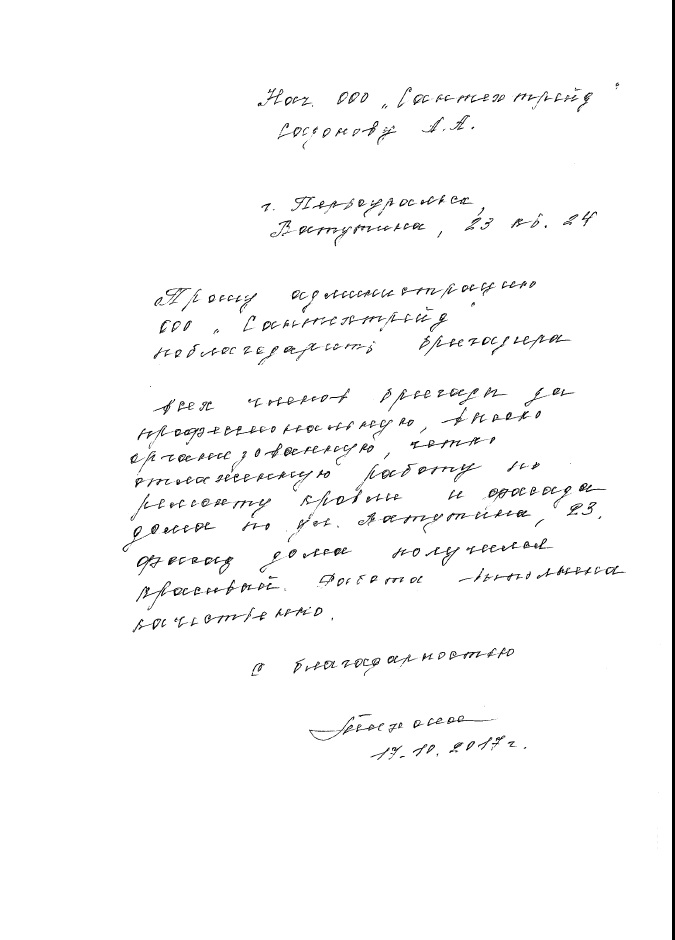 Нач. ООО „Сантехтрейд"
Сафонову А.А.
г. Первоуральск,
Ватутина, 23 кв. 24
Прошу администрацию
ООО „Сантехтрейд"
поблагодарить бригадира
всех членов бригады за
профессиональную, высоко
организованную, четко
отлаженную работу по
ремонту кровли и фасада
дома по ул. Ватутина, 23.
Фасад дома получился
красивый. Работа выполнена
качественно.
С благодарностью
17.10.2017г.